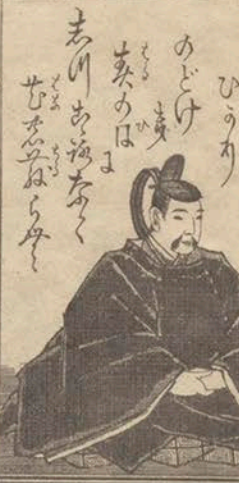 ひかり
のどけき
春の日に
志川こころなく
花のちるらむ